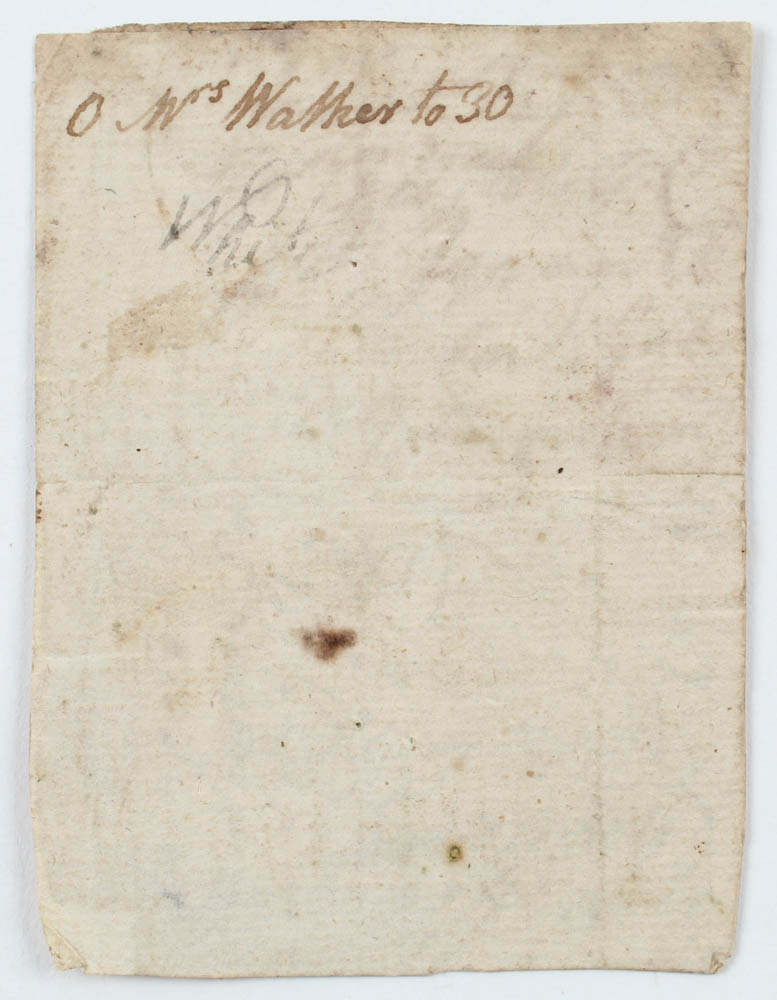 O Mrs Walker to 30